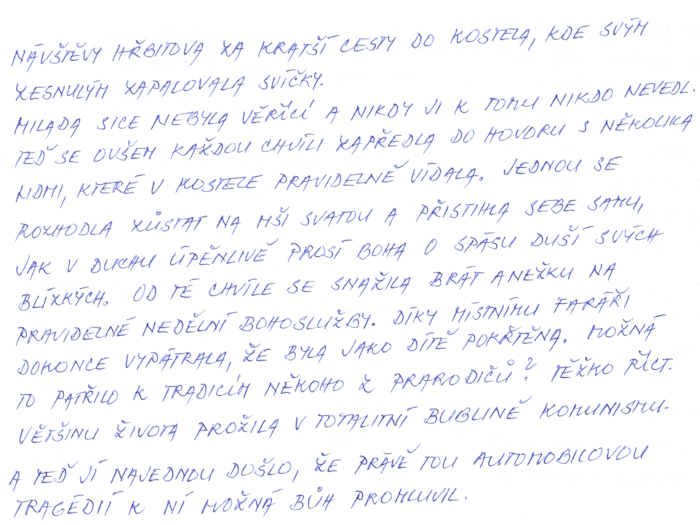 NÁVŠTĚVY HŘBITOVA ZA KRATŠÍ CESTY DO KOSTELA, KDE SVÝM
ZESNULÝM ZAPALOVALA SVÍČKY.
MILADA SICE NEBYLA VĚŘÍCÍ A NIKDY JI K TOMU NIKDO NEVEDL.
TEĎ SE OVŠEM KAŽDOU CHVÍLI ZAPŘEDLA DO HOVORU S NĚKOLIKA
LIDMI, KTERÉ V KOSTELE PRAVIDELNĚ VÍDALA. JEDNOU SE
ROZHODLA ZŮSTAT NA MŠI SVATOU A PŘISTIHLA SEBE SAMU,
JAK V DUCHU ÚPĚNLIVĚ PROSÍ BOHA O SPÁSU DUŠÍ SVÝCH
BLÍZKÝCH. OD TÉ CHVÍLE SE SNAŽILA BRÁT ANEŽKU NA
PRAVIDELNÉ NEDĚLNÍ BOHOSLUŽBY. DÍKY MÍSTNÍMU FARÁŘI
DOKONCE VYPÁTRALA, ŽE BYLA JAKO DÍTĚ POKŘTĚNA. MOŽNÁ
TO PATŘILO K TRADICÍM NĚKOHO Z PRARODIČŮ? TĚŽKO ŘÍCT.
VĚTŠINU ŽIVOTA PROŽILA V TOTALITNÍ BUBLINĚ KOMUNISMU.
A TEĎ JÍ NAJEDNOU DOŠLO, ŽE PRÁVĚ TOU AUTOMOBILOVOU
TRAGÉDIÍ K NÍ MOŽNÁ BŮH PROMLUVIL.